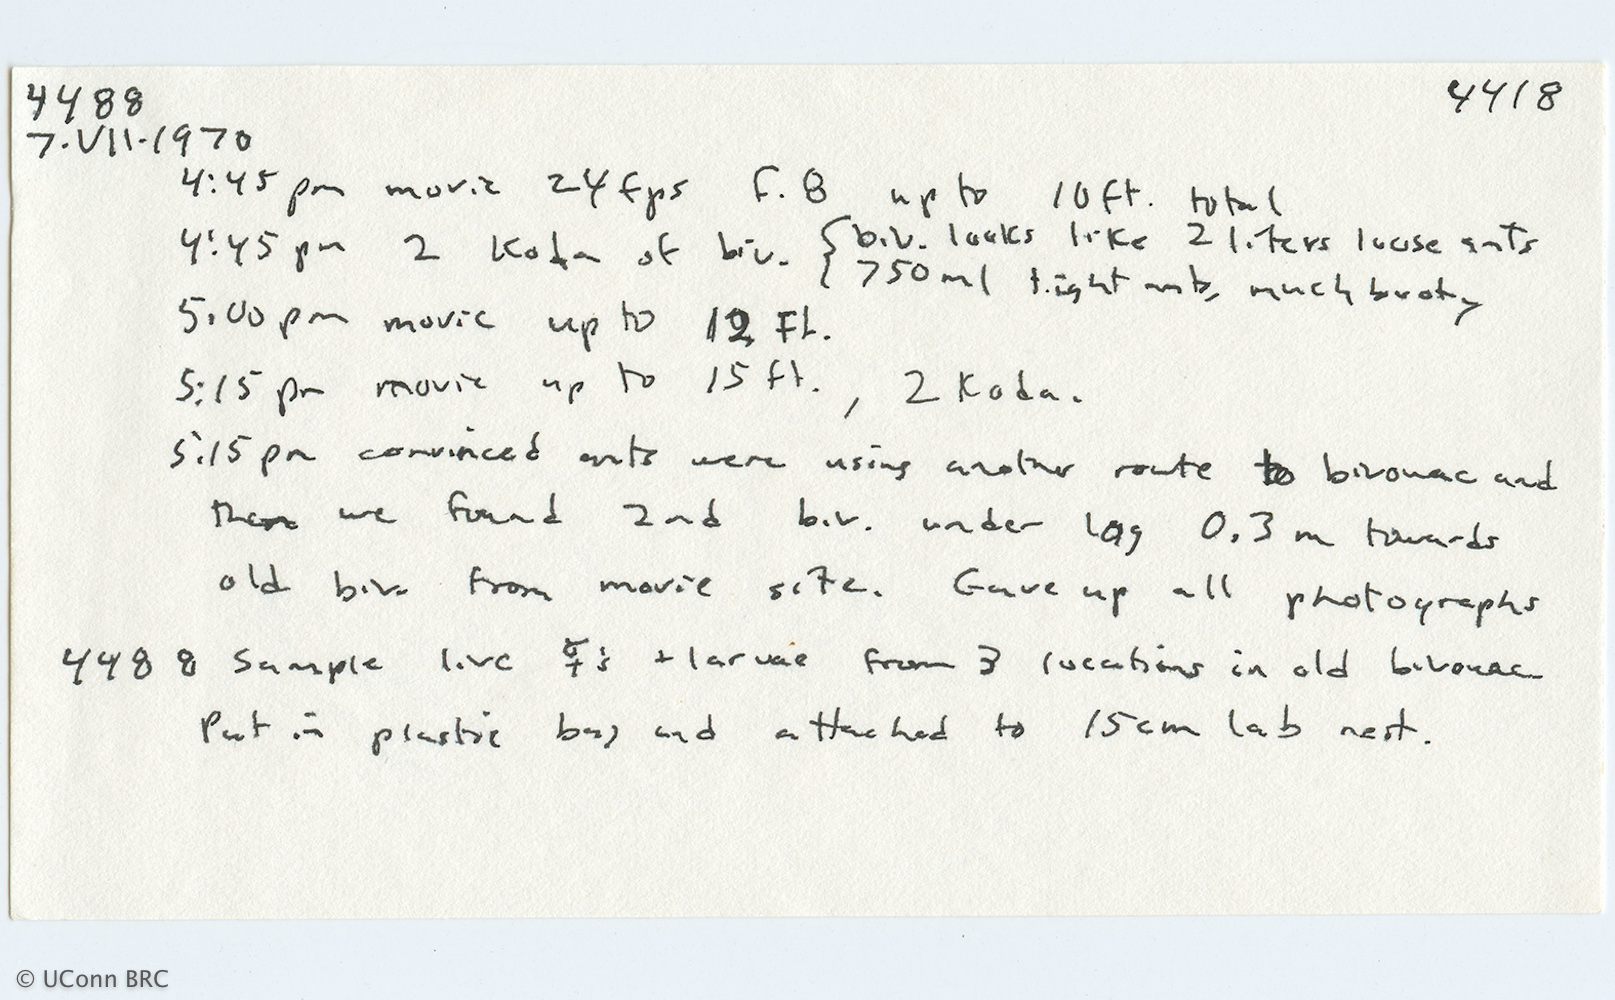 4488 4418
7.VII.1970
4:45 pm movie 24 fps F.8 up to 10 ft. total
4:45 pm 2 Koda of biv. { biv. looks like 2 liters loose ants
750 ml tight ants, much booty
5:00 pm movie up to 12 Ft.
5:15 pm movie up to 15 ft., 2 Koda.
5:15 pm convinced ants were using another route to bivouac and
then we found 2nd biv. under log 0.3 m towards
old biv. from movie site. Gave up all photographs
4488 Sample live ☿'s + larvae from 3 locations in old bivouac
Put in plastic bag and attached to 15cm lab nest.
© UConn BRC